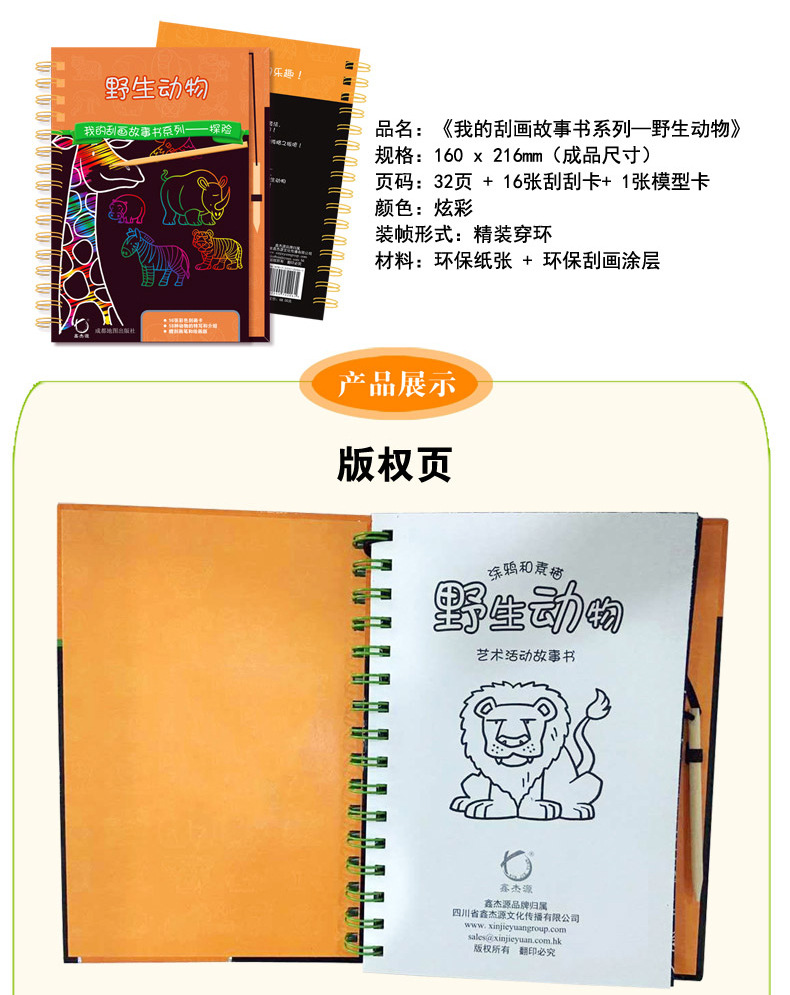 野生动物
我的刮画故事书系列——探险
鑫杰源
成都地图出版社
的乐趣！
品名：《我的刮画故事书系列—野生动物》
规格：160 x 216mm（成品尺寸）
页码：32页 + 16张刮刮卡+ 1张模型卡
颜色：炫彩
装帧形式：精装穿环
材料：环保纸张 + 环保刮画涂层
产品展示
版权页
涂鸦和素描
野生动物
艺术活动故事书
鑫杰源
鑫杰源品牌归属
四川省鑫杰源文化传播有限公司
www. xinjieyuangroup.com
sales@xinjieyuan.com.hk
版权所有 翻印必究